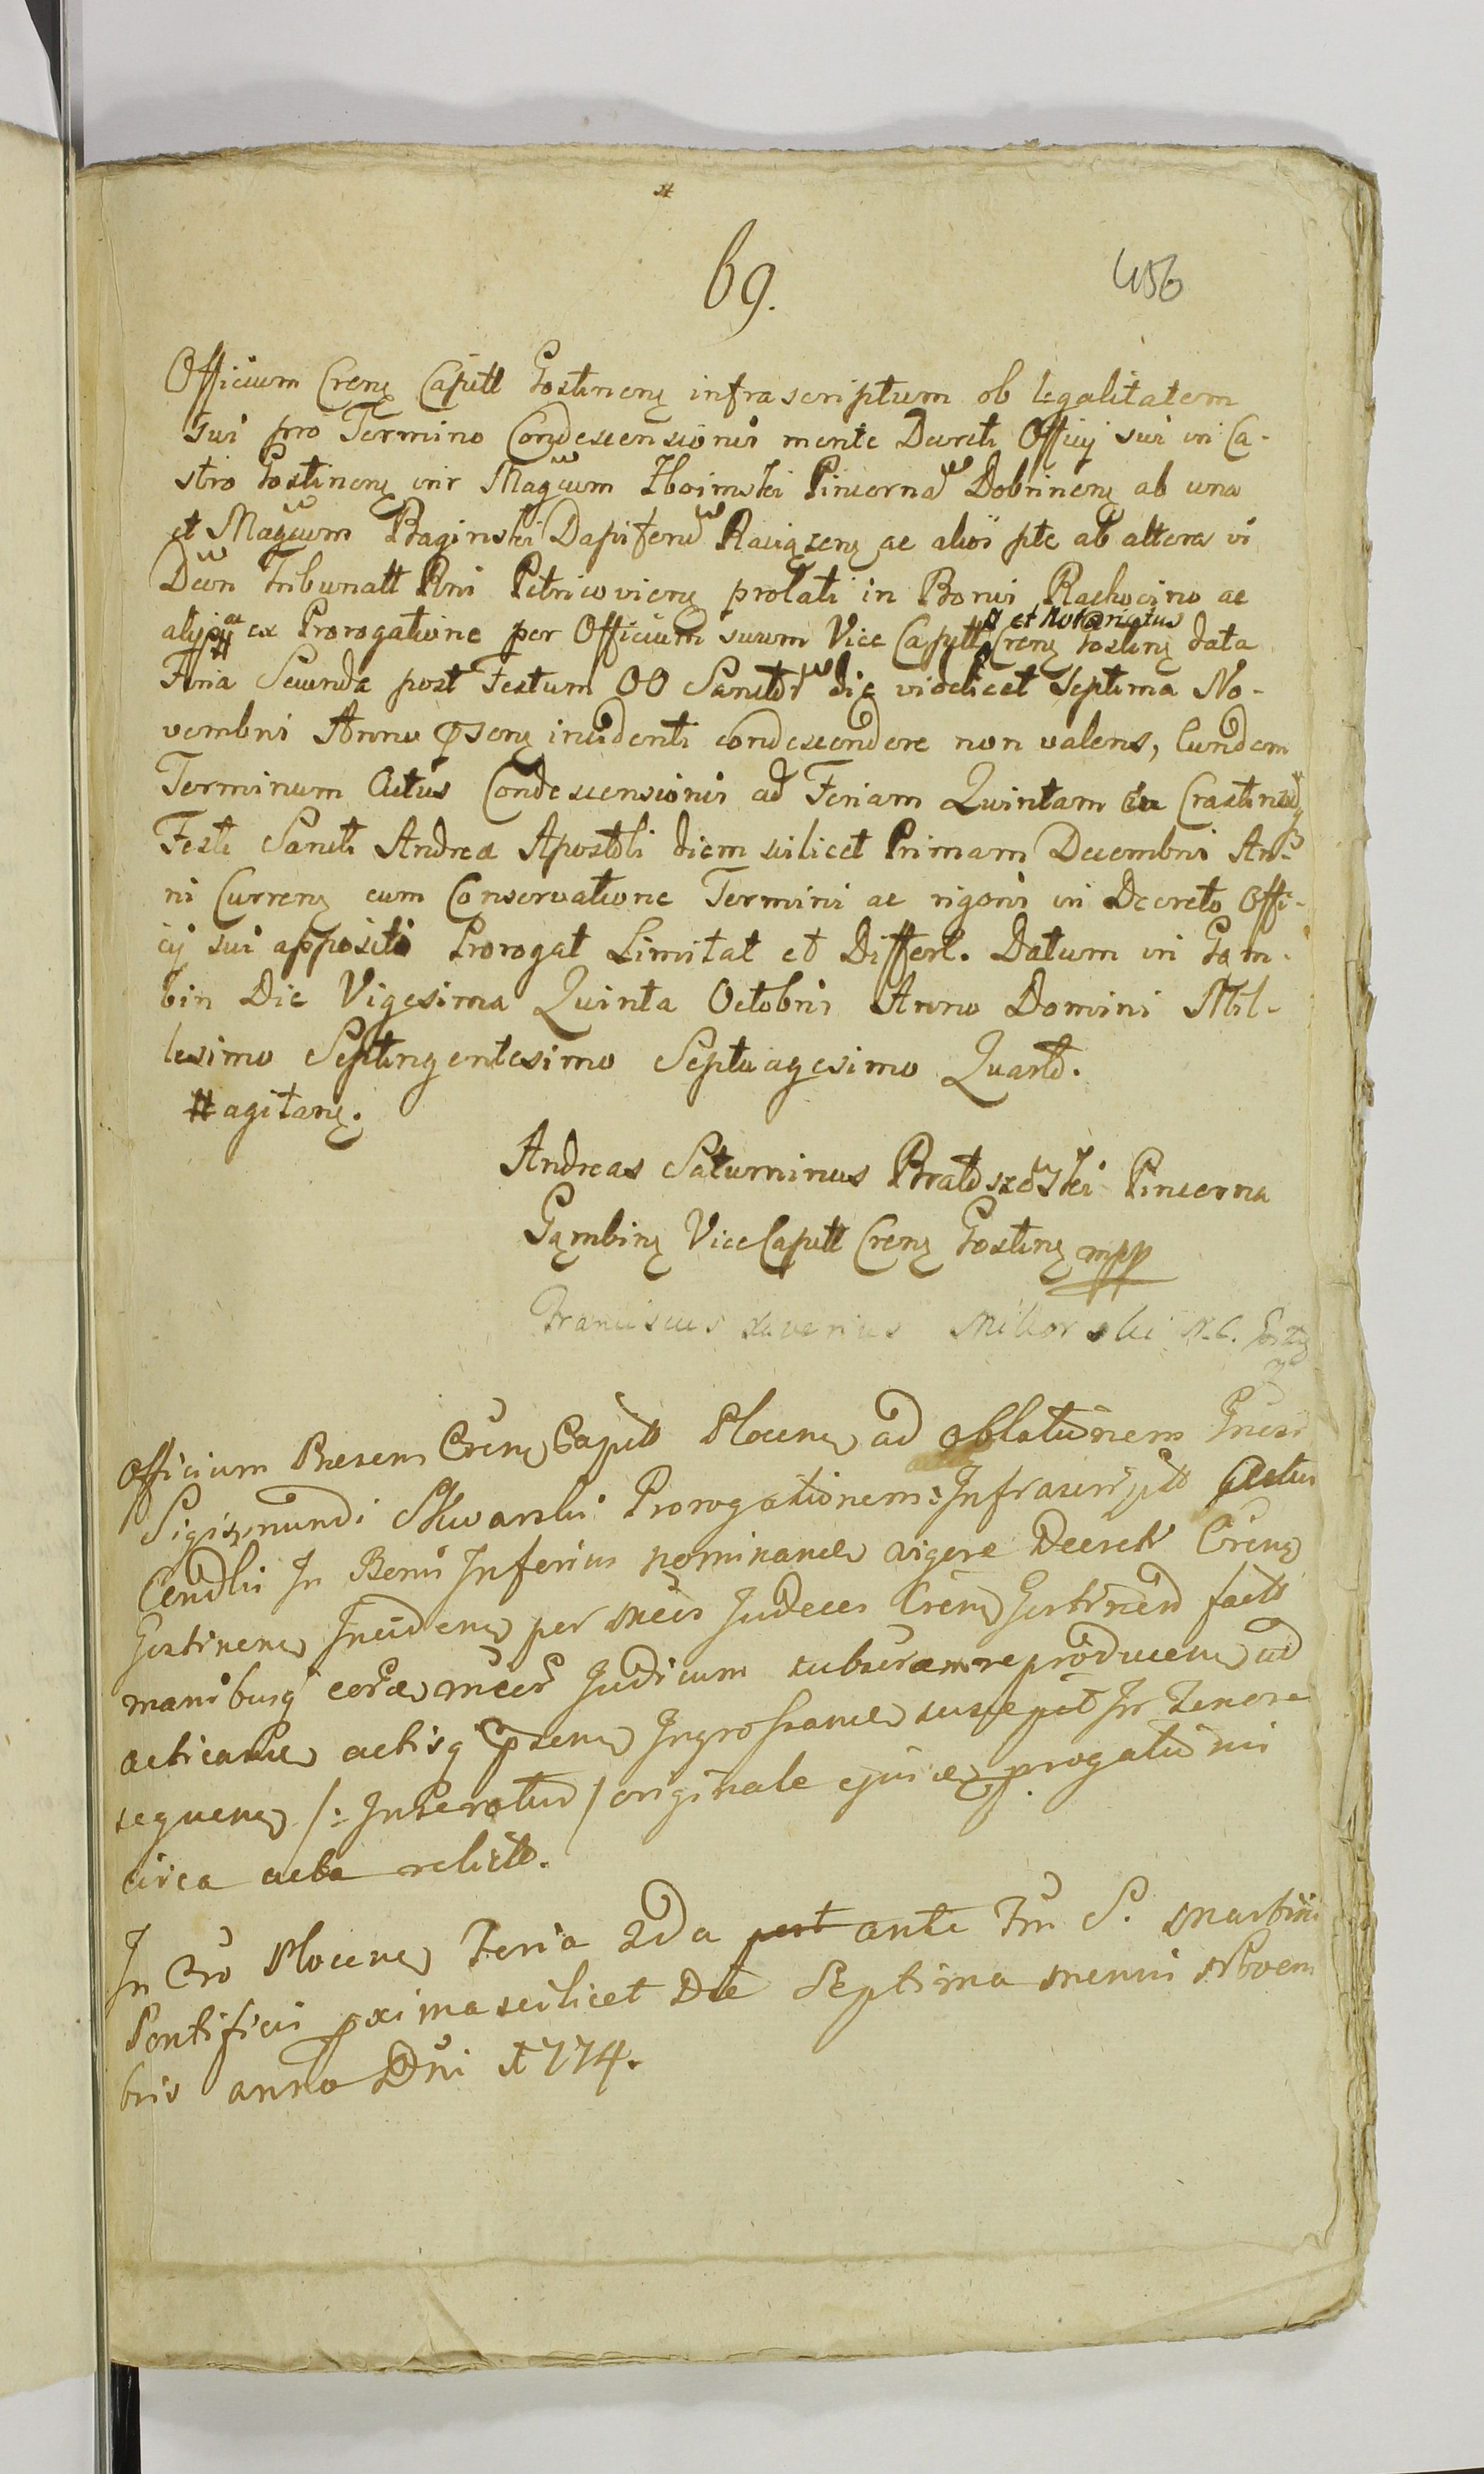 69.
456
Officium Creng Capitt Gostineng infrascriptum ob legalitatem
sui pro Termino Condescensionis mente Decreti Officij sui in Ca-
stro Gostineng inr Magcum Zboimski Pincernã Dobrineng ab una
et Magcum Baginski Dapiferũ Raciązeng ac alios pte ab altera vi
Dcon Tribunatt Rni Petricovieng prolati in Bonis Rachocino ac
et Notariatus
alijs ex Prorogatione per Officium suum Vice Capitt Creng Gosting data
Feria Secunda post Festum OO Sanctor die videlicet Septima No-
vembris Anno pseng incidenti condescendere non valens, Eundem
Terminum Actus Condescensionis ad Feriam Quintam in Crastino
Festi Sancti Andrea Apostoli diem scilicet Primam Decembris An-
ni Curreng cum Conservatione Termini ac rigoris in Decreto Offi-
cij sui appositi Prorogat Limitat et Differt. Datum in Gam-
bin Die Vigesima Quinta Octobris Anno Domini Mil-
lesimo Septingentesimo Septuagesimo Quarto.
# agitang.
Andreas Saturninus Pincerna
Gąmbing Vice Capitt Creng Gosting mpp
Franciscus Xaverius Mikorski N.C. Gosting
Officium Presens Creng Capitt Ploceng ad oblationem
Sigismundi Skwarski Prorogationem Infrascriptt Actus
Cendlis In Bonis Inferius nominand vigore Decreti Creng
Gostineng Incideng per Judices Creng Gostinens factt
manibusq eord Judicum subscram reproduceng ad
acticand actisq pseng Ingrossand suscepit In Tenore
sequeng /: Inseratur / originale ejusd progationis
circa acta relicto.
In Cro Ploceng Feria 2da post ante Fm S. Martini
Pontificis pxima scilicet Die Septima mensis Novem
bris anno Dni 1774.